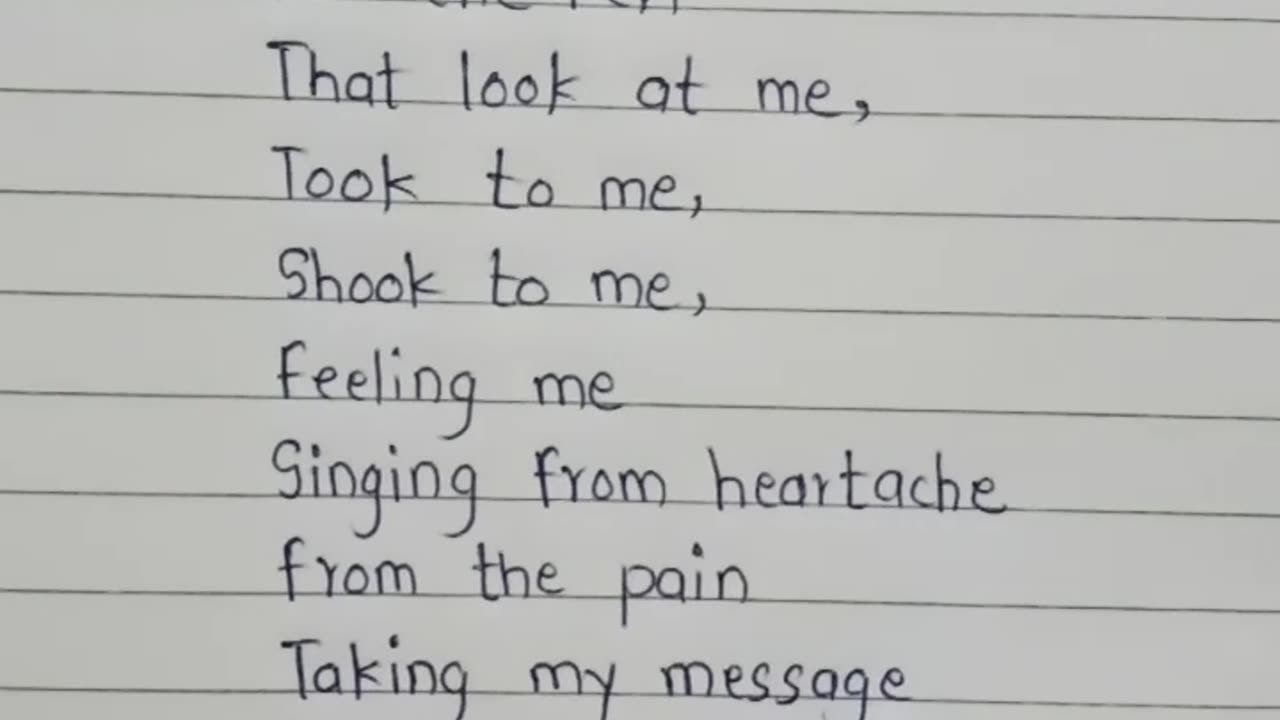 That look at me,
Took to me,
Shook to me,
feeling me
Singing from heartache
from the pain
Taking my message